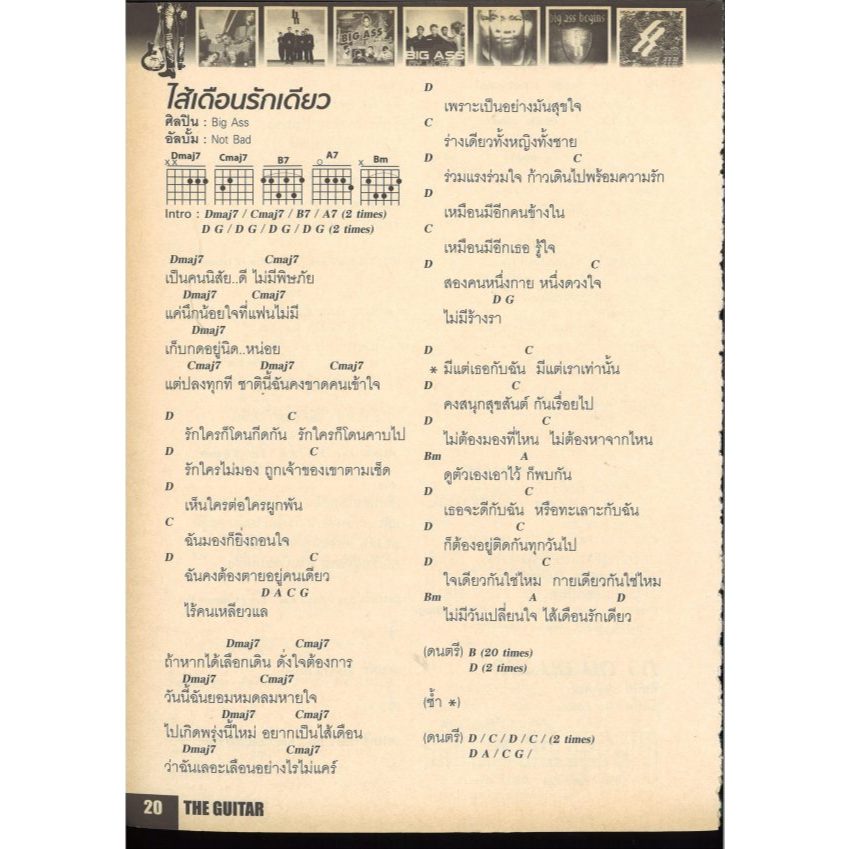 BIG ASS
BIG ASS
big ass begins
ไส้เดือนรักเดียว
ศิลปิน : Big Ass
อัลบั้ม : Not Bad
Dmaj7 Cmaj7 B7 A7 Bm
Intro : Dmaj7 / Cmaj7 / B7 / A7 (2 times)
D G / D G / D G / D G (2 times)
Dmaj7 Cmaj7
เป็นคนนิสัย..ดี ไม่มีพิษภัย
Dmaj7 Cmaj7
แค่นึกน้อยใจที่แฟนไม่มี
Dmaj7
เก็บกดอยู่นิด..หน่อย
Cmaj7 Dmaj7 Cmaj7
แต่ปลงทุกที ชาตินี้ฉันคงขาดคนเข้าใจ
D C
รักใครก็โดนกีดกัน รักใครก็โดนคาบไป
D C
รักใครไม่มอง ถูกเจ้าของเขาตามเช็ด
D
เห็นใครต่อใครผูกพัน
C
ฉันมองก็ยิ่งถอนใจ
D C
ฉันคงต้องตายอยู่คนเดียว
D A C G
ไร้คนเหลียวแล
Dmaj7 Cmaj7
ถ้าหากได้เลือกเดิน ดั่งใจต้องการ
Dmaj7 Cmaj7
วันนี้ฉันยอมหมดลมหายใจ
Dmaj7 Cmaj7
ไปเกิดพรุ่งนี้ใหม่ อยากเป็นไส้เดือน
Dmaj7 Cmaj7
ว่าฉันเลอะเลือนอย่างไรไม่แคร์
D
เพราะเป็นอย่างมันสุขใจ
C
ร่างเดียวทั้งหญิงทั้งชาย
D C
ร่วมแรงร่วมใจ ก้าวเดินไปพร้อมความรัก
D
เหมือนมีอีกคนข้างใน
C
เหมือนมีอีกเธอ รู้ใจ
D C
สองคนหนึ่งกาย หนึ่งดวงใจ
D G
ไม่มีร้างรา
D C
* มีแต่เธอกับฉัน มีแต่เราเท่านั้น
D C
คงสนุกสุขสันต์ กันเรื่อยไป
D C
ไม่ต้องมองที่ไหน ไม่ต้องหาจากไหน
Bm A
ดูตัวเองเอาไว้ ก็พบกัน
D C
เธอจะดีกับฉัน หรือทะเลาะกับฉัน
D C
ก็ต้องอยู่ติดกันทุกวันไป
D C
ใจเดียวกันใช่ไหม กายเดียวกันใช่ไหม
Bm A D
ไม่มีวันเปลี่ยนใจ ไส้เดือนรักเดียว
(ดนตรี) B (20 times)
D (2 times)
(ซ้ำ *)
(ดนตรี) D / C / D / C / (2 times)
D A / C G /
20 THE GUITAR